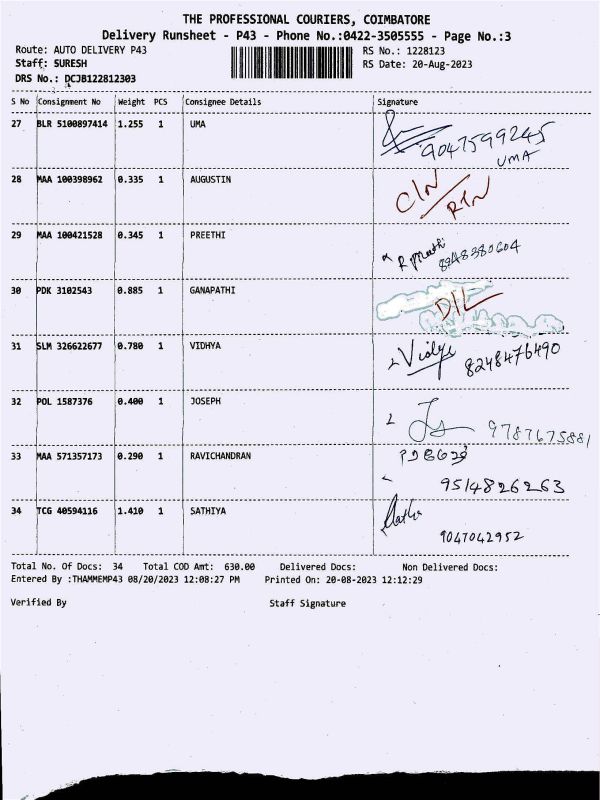 THE PROFESSIONAL COURIERS, COIMBATORE
Delivery Runsheet - P43 - Phone No.:0422-3505555 - Page No.:3
Route: AUTO DELIVERY P43 RS No.: 1228123
Staff: SURESH RS Date: 20-Aug-2023
DRS No.: DCJB122812303
S No Consignment No Weight PCS Consignee Details Signature
27 BLR 5100897414 1.255 1 UMA 9047599245
UMA
28 MAA 100398962 0.335 1 AUGUSTIN CIN/
RTN
29 MAA 100421528 0.345 1 PREETHI R Preethi 8248380604
30 PDK 3102543 0.885 1 GANAPATHI D/L
31 SLM 326622677 0.780 1 VIDHYA Vidya 8248476490
32 POL 1587376 0.400 1 JOSEPH 9787675881
33 MAA 571357173 0.290 1 RAVICHANDRAN
9514826263
34 TCG 40594116 1.410 1 SATHIYA
9047042952
Total No. Of Docs: 34 Total COD Amt: 630.00 Delivered Docs: Non Delivered Docs:
Entered By :THAMMEMP43 08/20/2023 12:08:27 PM Printed On: 20-08-2023 12:12:29
Verified By Staff Signature